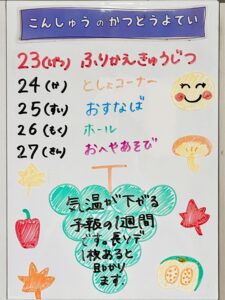 こんしゅうのかつどうよてい
23(げつ) ふりかえきゅうじつ
24(か) としょコーナー
25(すい) おすなば
26(もく) ホール
27(きん) おへやあそび
気温が下がる
予報の1週間
です。長ソデ
1枚あると
助かり
ます。